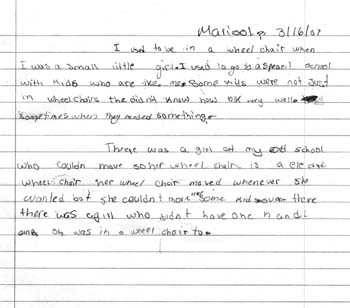 Marisol p 3/16/07
I used to be in a wheel chair when
I was a small little girl. I used to go to a speacil school
with kids who are like me. Some kids were not just
in wheelchairs the didn't know how talk very well
sometimes when they needed something.
There was a girl at my school
who couldn mave so her wheel chair is a elect
wheel chair her wheel chair moved whenever she
wanted but she couldn't move some kids over there
there was a girl who didn't have one hand
and she was in a wheel chair to.